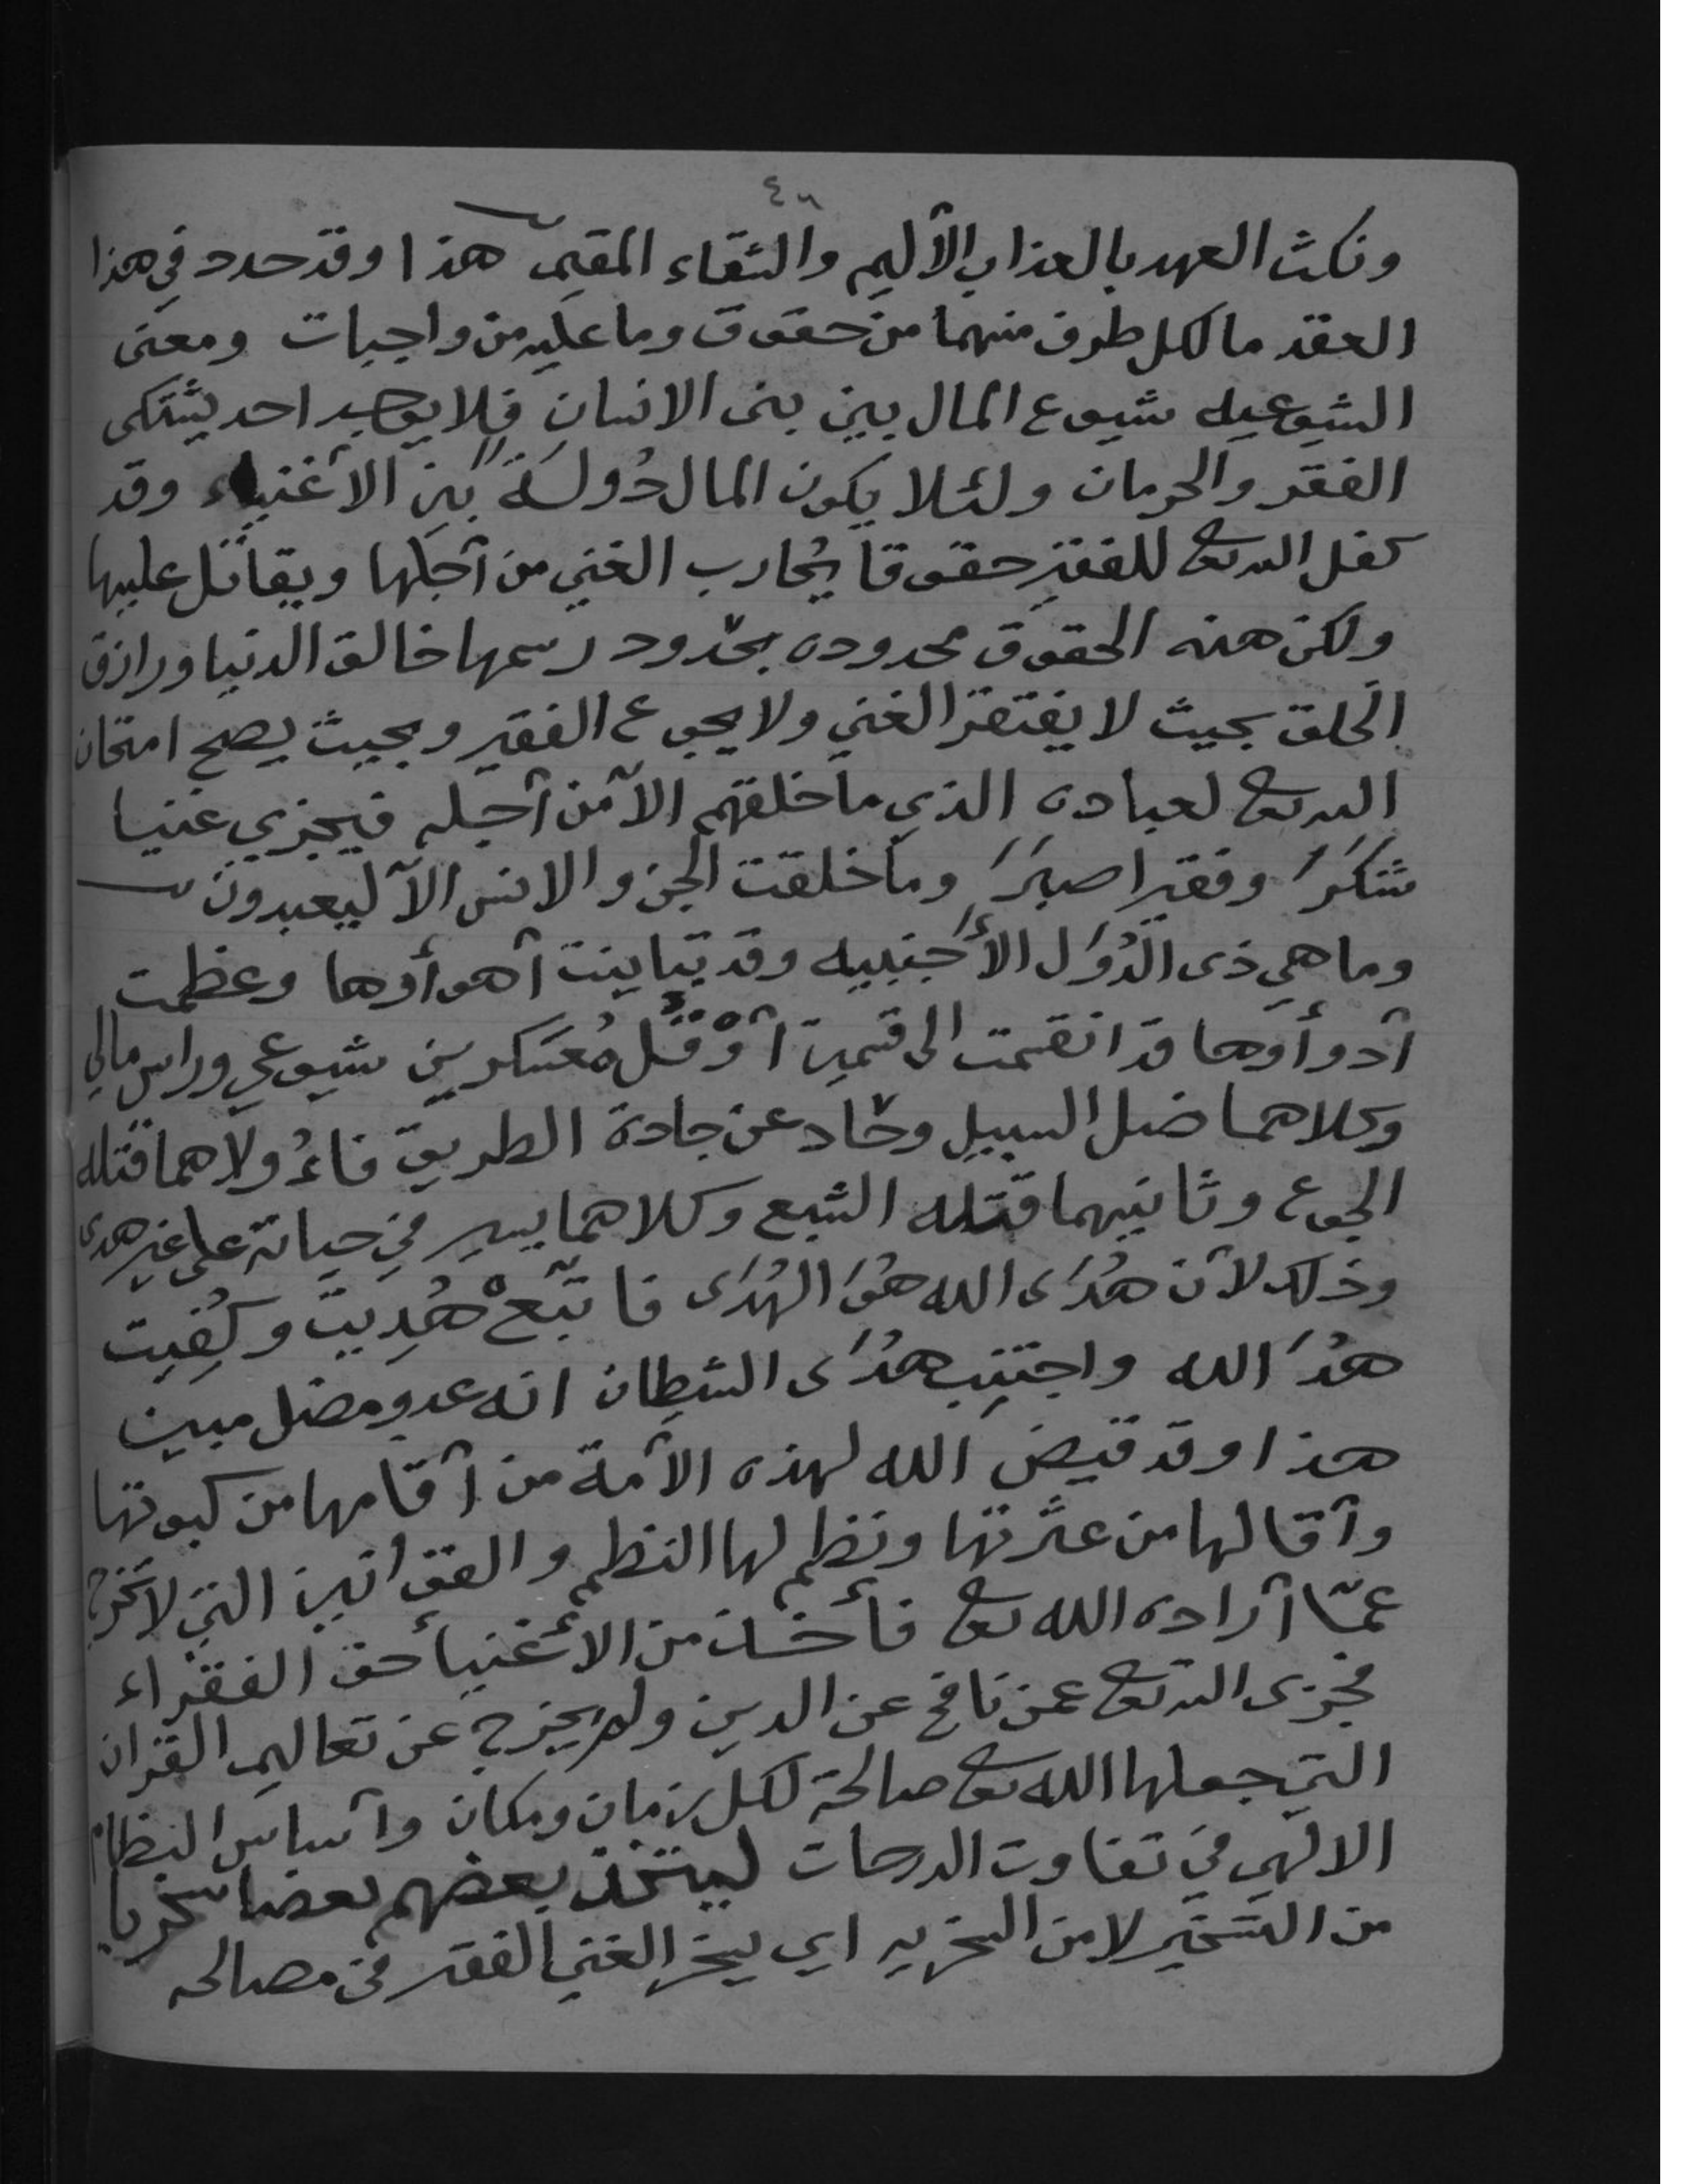 ٤٦
ونكث العهد بالعذاب الآليم والشقاء المقيم هذا وقد حدد في هذا
العقد ما لكل طرف منهما من حقوق وما عليه من واجبات ومعنى
الشيوعيه شيوع المال بين بنى الانسان فلا يوجد احد يشتكى
الفقر والحرمان ولئلا يكون المال دُولَةً بين الآغنياء وقد
كفل الله تعا للفقير حقوقا يُحارب الغني من آجلها ويقاتل عليها
ولكن هذه الحقوق محدوده بحدود رسمها خالق الدنيا ورازق
الخلق بحيث لا يفتقر الغني ولا يجوع الفقير وبحيث يصح امتحان
الله تعا لعباده الذي ما خلقهم الآ من آجله فيجزي غنيا
شكرَ وفقيرا صبرَ وما خلقت الجن والانس الآ ليعبدون
وما هي ذى الدُوَل الأَجنبيه وقد تباينت آهوأوها وعظمت
آدوأوها قد انقسمت الى قسمين آوْ قُل مُعسكرين شيوعي وراس مالي
وكلاهما ضل السبيل وحاد عن جادة الطريق فاءُولاهما قتله
الجوع وثانيهما قتله الشبع وكلاهما يسير في حياته على غير هدى
وذلك لآن هُدَى الله هُوَ الهُدَى فا تبعْ هُدِيتَ وكُفِيت
هدَُ الله واجتنِب هدَُى الشيطان انه عدو مضل مبين
هذا وقد قيض الله لهذه الآمة من آقامها من كبوتها
وآقالها من عثرتها ونظم لها النظم والقوانين التي لا تخرج
عمّا آراده الله تعا فأخذ من الأغنيأ حق الفقراء
فجزى الله تعا عمن نافح عن الدين ولم يخرج عن تعاليم القران
التي جعلها الله تعا صالحة لكل زمان ومكان وآساس النظام
الالهي في تفاوت الدرجات ليتخذ بعضهم بعضا سخريا
من التسخير لا من السخريه اي يسخر الغني الفقير في مصالحه